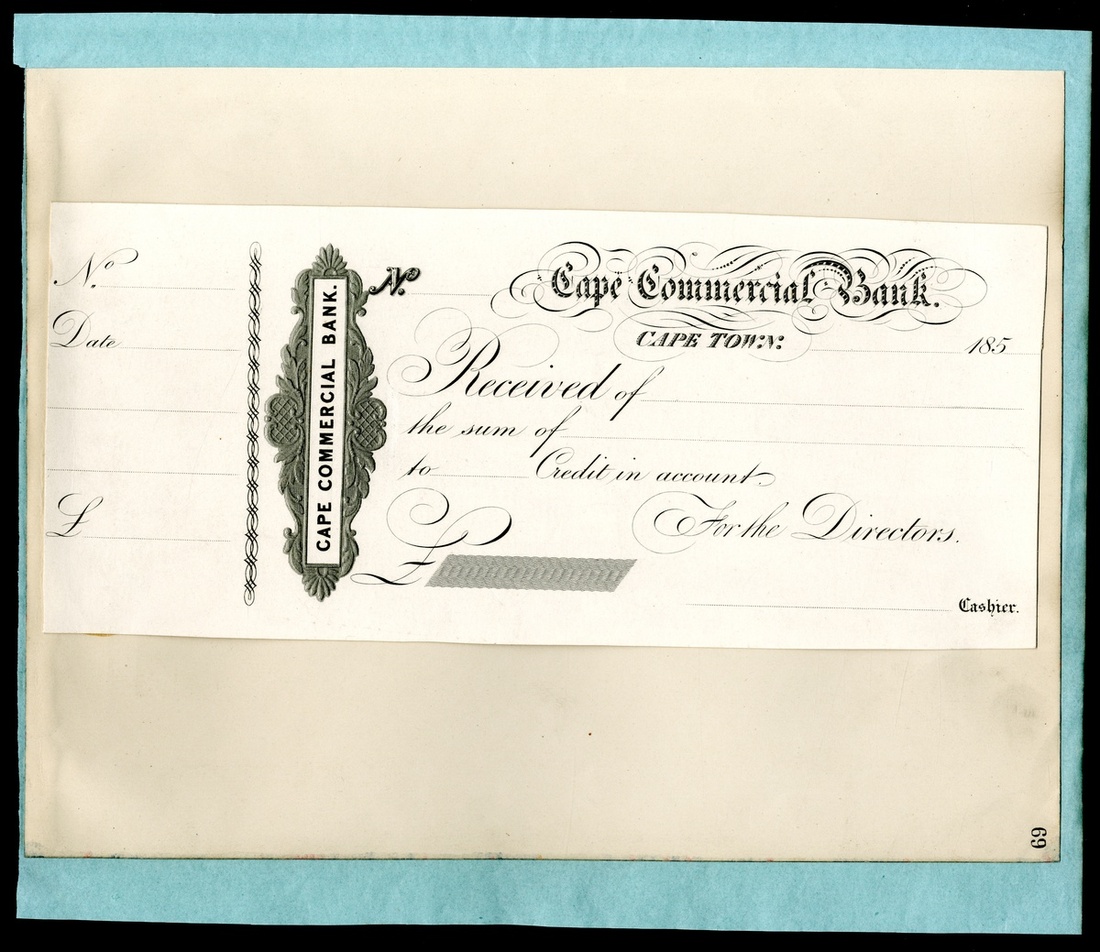 No.
Date
£
CAPE COMMERCIAL BANK.
No.
Cape Commercial Bank.
CAPE TOWN:
185
Received of
the sum of
to Credit in account.
£
For the Directors.
Cashier.
69